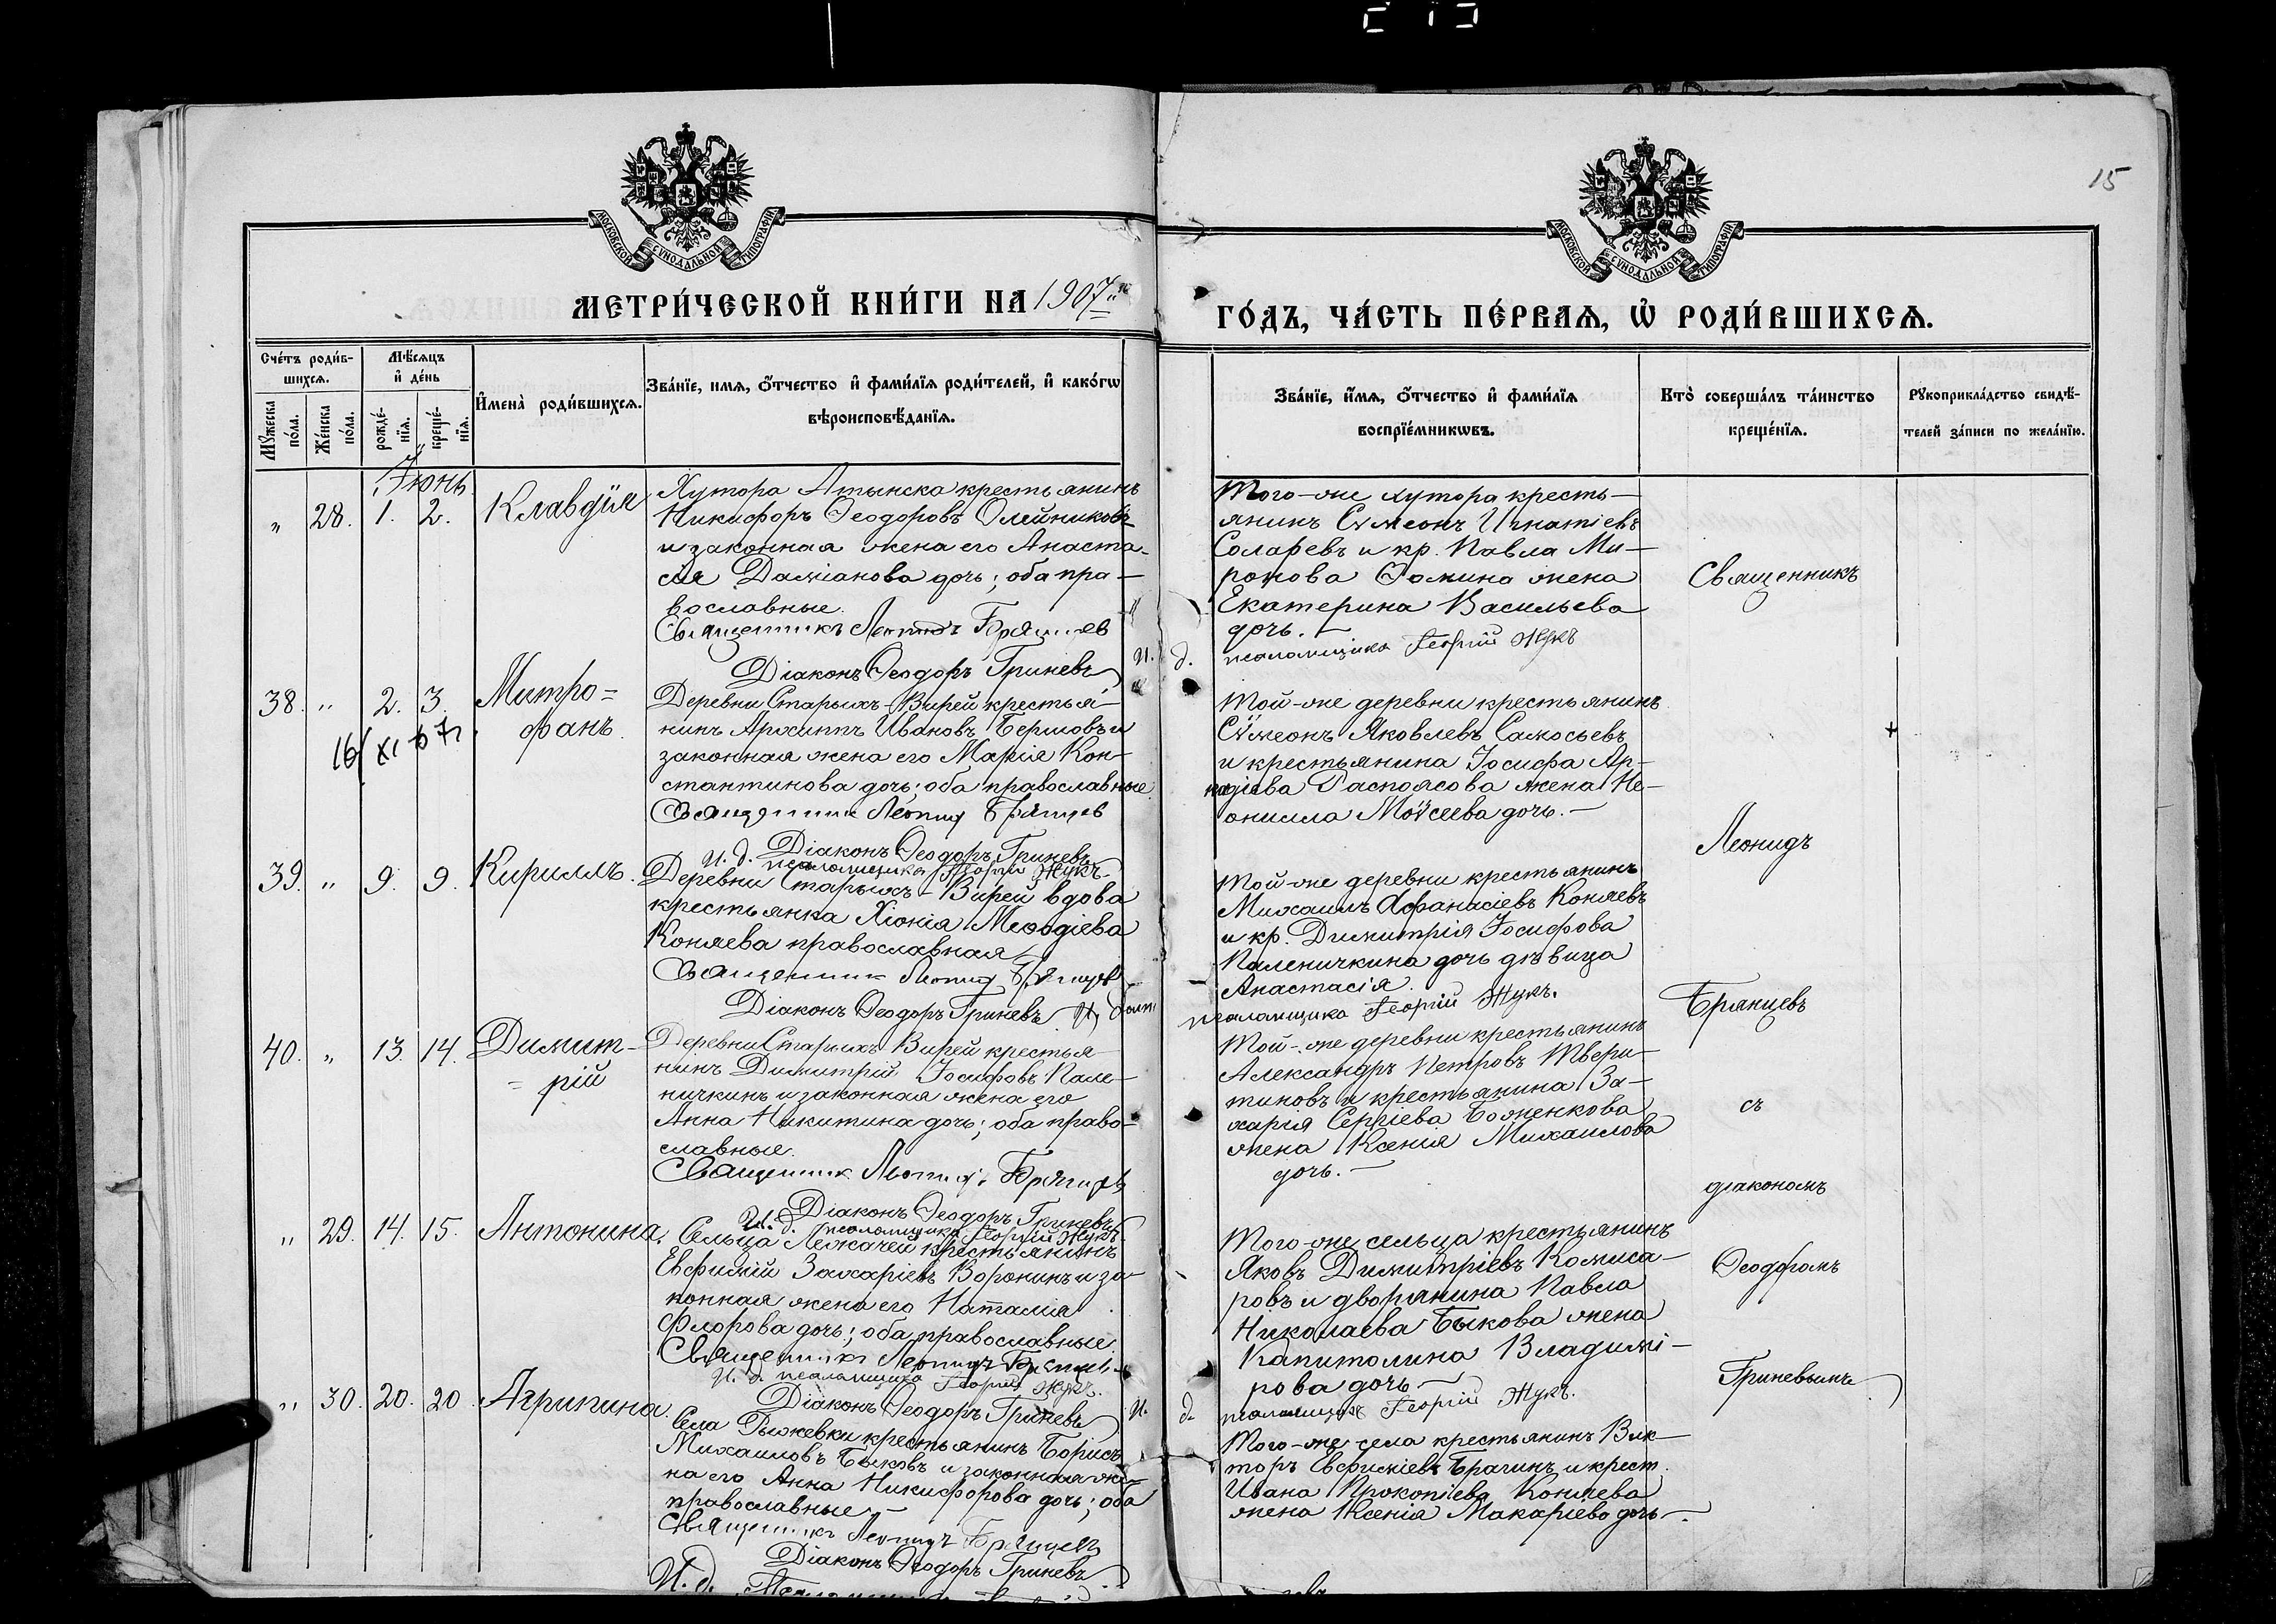 15
МОСКОВСКОЙ СѴНОДАЛЬНОЙ ТИПОГРАФІИ
МОСКОВСКОЙ СѴНОДАЛЬНОЙ ТИПОГРАФІИ
МЕТРИ́ЧЕСКОЙ КНИ́ГИ НА 1907
ГО́ДЪ, ЧА́СТЬ ПЕ́РВАѦ, Ѡ РОДИ́ВШИХСѦ.
Сче́тъ роди́в-
шихсѧ.
Мꙋ́жеска по́ла.
Же́нска по́ла.
Мѣ́сѧцъ
и҆ де́нь
рожде́-
нїѧ.
креще́-
нїѧ.
И҆мена̀ роди́вшихсѧ.
Зва́нїе, имѧ, ѻ҆́тчество и҆ фами́лїѧ роди́телей, и҆ како́гѡ
вѣроисповѣ́данїѧ.
Зва́нїе, и҆́мѧ, ѻ҆́тчество и҆ фами́лїѧ
воспрїе́мникѡвъ.
Кто̀ соверша́лъ та́инство
креще́нїѧ.
Рꙋкоприкла́дство свидѣ́-
телей за́писи по жела́нїю.
Іюнь
„ 28. 1. 2. Клавдія
Хутора Атынска крестьянинъ
Никифоръ Ѳеодоровъ Олейниковъ
и законная жена его Анаста-
сія Даміанова дочь; оба пра-
вославные.
Священникъ Леонидъ Брянцев
Діаконъ Ѳеодоръ Гриневъ
И. д. псаломщика Георгій Жукъ
Того-же хутора кресть-
янинъ Сѵмеонъ Игнатіевъ
Соларевъ и кр. Павла Ми-
ронова Ѳомина жена
Екатерина Васильева
дочь.
38. „ 2. 3. Митро=
фанъ.
Деревни Старыхъ-Вирей крестья-
нинъ Архиппъ Ивановъ и
законная жена его Марія Кон-
стантинова дочь; оба православные
Священник Леонид Брянцев
Діаконъ Ѳеодоръ Гриневъ
И. д. псаломщика Георгій Жукъ
Той-же деревни крестьянинъ
Сѵмеонъ Яковлевъ Самосьевъ
и крестьянина Іосифа Ар-
кадіева Распоясова жена Не-
онилла Моѵсеева дочь.
39. „ 9. 9. Кириллъ.
Деревни Старыхъ-Вирей вдова
крестьянка Хіонія Меѳодіева
Коняева православная
Священник Леонид Брянцев
Діаконъ Ѳеодоръ Гриневъ
псаломщика Георгій Жукъ.
Той-же деревни крестьянинъ
Михаилъ Аѳанасіевъ Коняевъ
и кр. Димитрія Іосифова
Паленичкина дочь дѣвица
Анастасія.
40. „ 13. 14. Димит-
=рій
Деревни Старыхъ-Вирей крестья-
нинъ Димитрій Іосифовъ Пале-
ничкинъ и законная жена его
Анна Никитина дочь; оба право-
славные.
Священник Леонид Брянцев
Діаконъ Ѳеодоръ Гриневъ
И. д. псаломщика Георгій Жукъ
Той-же деревни крестьянинъ
Александръ Петровъ Твери-
тиновъ и крестьянина За-
харія Сергіева Боженкова
жена Ксенія Михаилова
дочь.
„ 29. 14. 15. Антонина.
Сельца Лежачей крестьянинъ
Евфимій Захаріевъ Воронинъ и за-
конная жена его Наталія
Флорова дочь; оба православные.
Священникъ Леонидъ Брянцев
И. д. псаломщика Георгій Жукъ.
Діаконъ Ѳеодоръ Гриневъ
Того-же сельца крестьянинъ
Яковъ Димитріевъ Комиса-
ровъ и дворянина Павла
Николаева Быкова жена
Капитолина Владимі-
рова дочь
И. д. псаломщика Георгій Жукъ.
„ 30. 20. 20 Агрипина.
Села Рыжевки крестьянинъ Борисъ
Михаиловъ Быковъ и законная же-
на его Анна Никифорова дочь; оба
православные.
Священникъ Леонидъ Брянцев
Діаконъ Ѳеодоръ Гриневъ
И. д.
Того-же села крестьянинъ Вик-
торъ Евфиміевъ Брагинъ и крест.
Ивана Прокопіева Коняева
жена Ксенія Макаріева дочь.
Священникъ
Леонидъ
Брянцевъ
съ
діакономъ
Ѳеодоромъ
Гриневымъ